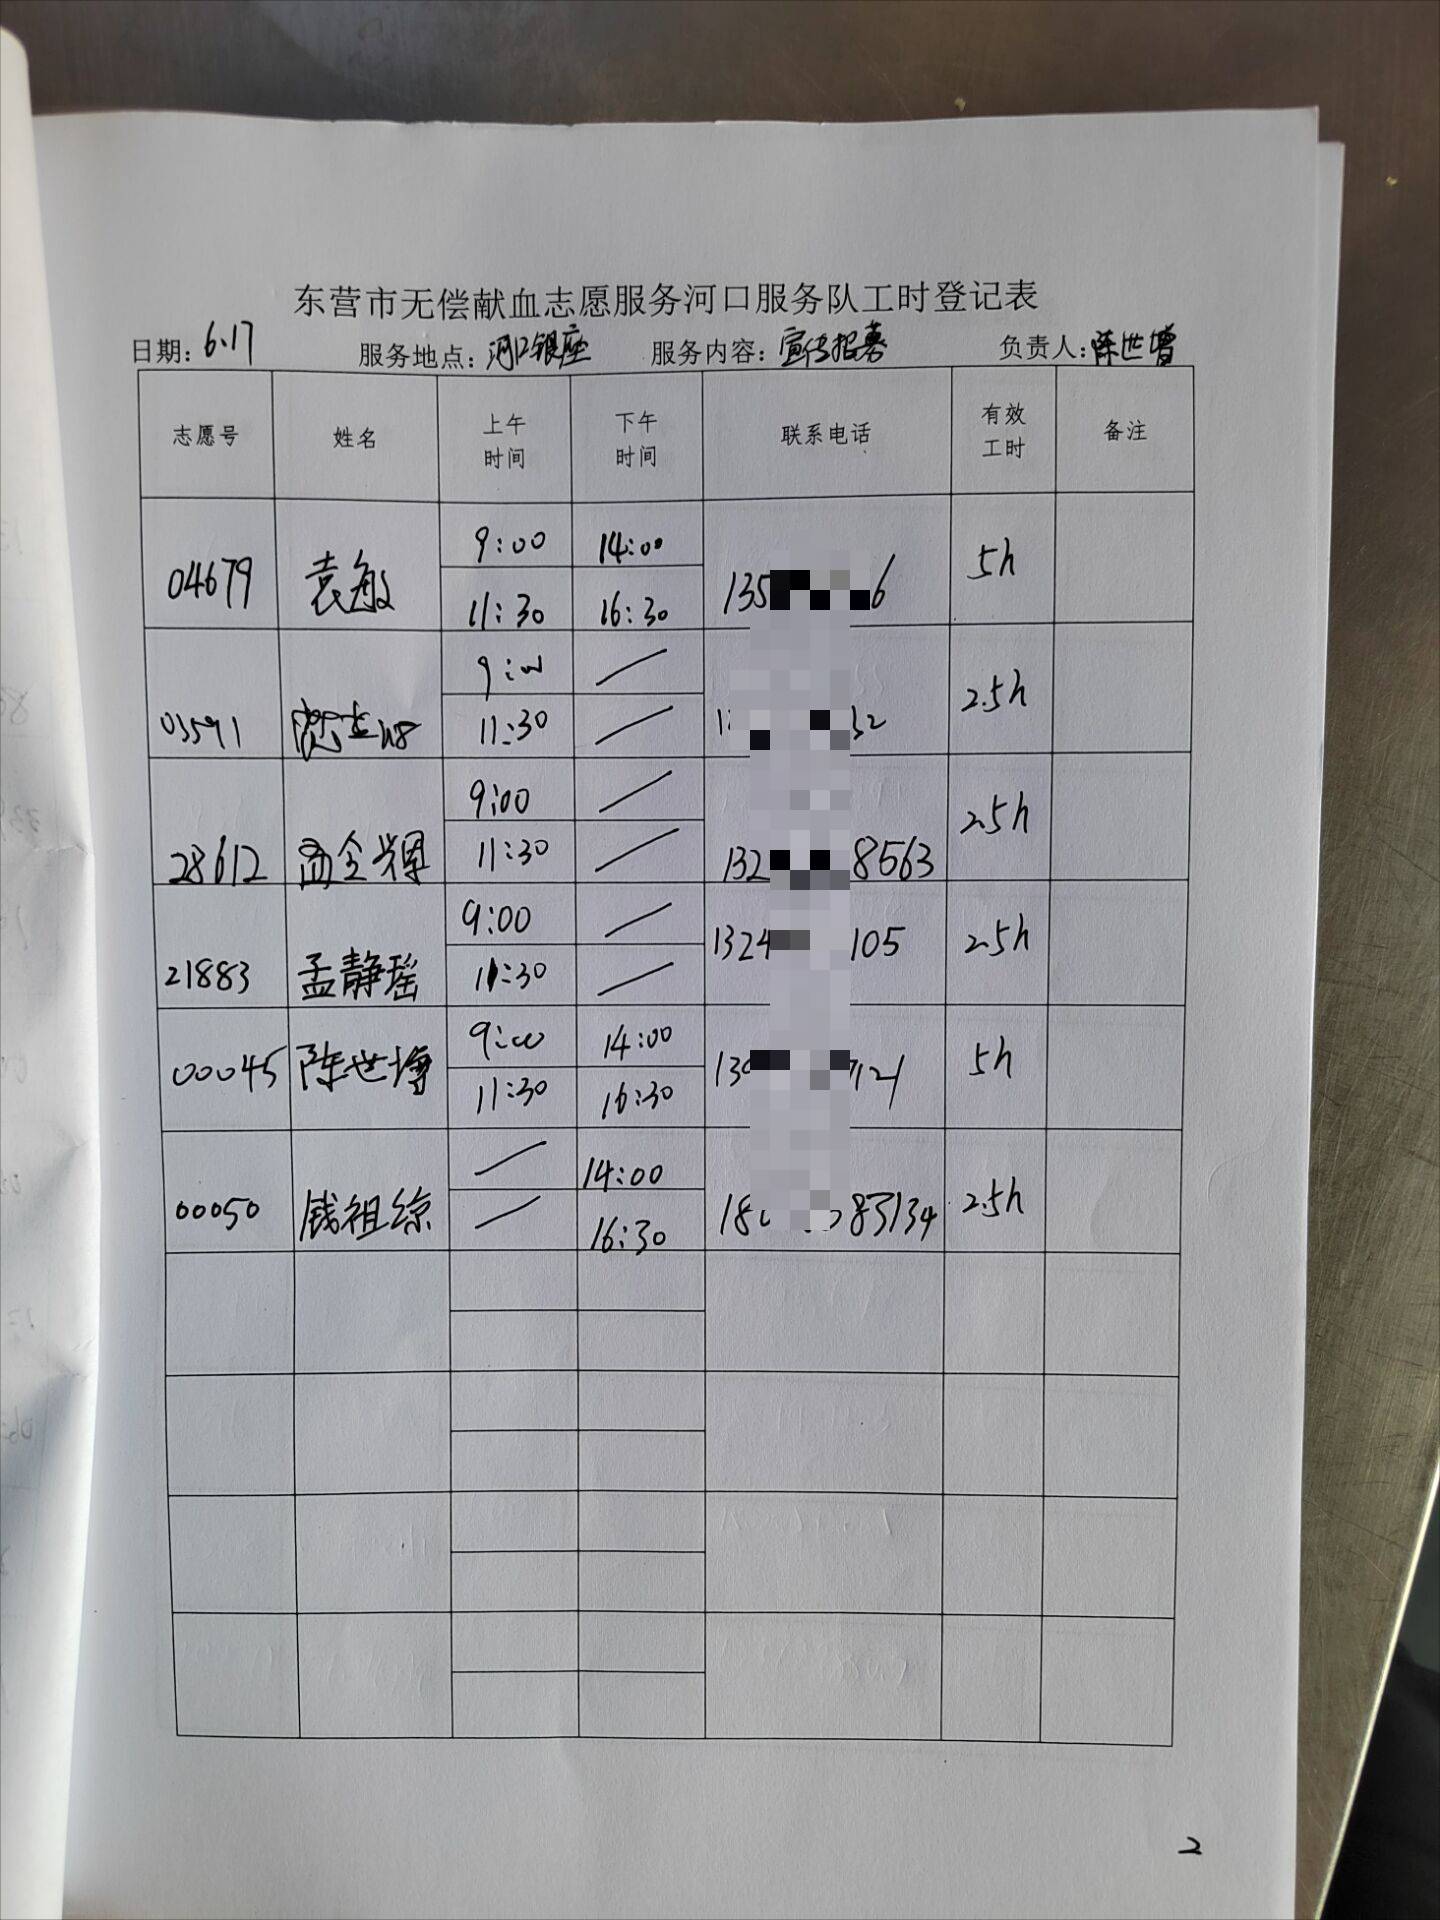 东营市无偿献血志愿服务河口服务队工时登记表
日期: 6.17 服务地点: 河口银座 服务内容: 宣传招募 负责人: 陈世增
志愿号 姓名 上午时间 下午时间 联系电话 有效工时 备注
04679 袁敏 9:00 14:00 135 6 5h
11:30 16:30
03591 9:00 / 32 2.5h
11:30 /
28612 9:00 / 132 8563 2.5h
11:30 /
21883 孟静瑶 9:00 / 1324 105 2.5h
11:30 /
00045 陈世增 9:00 14:00 139 7121 5h
11:30 16:30
00050 钱祖综 / 14:00 180 83134 2.5h
/ 16:30
2